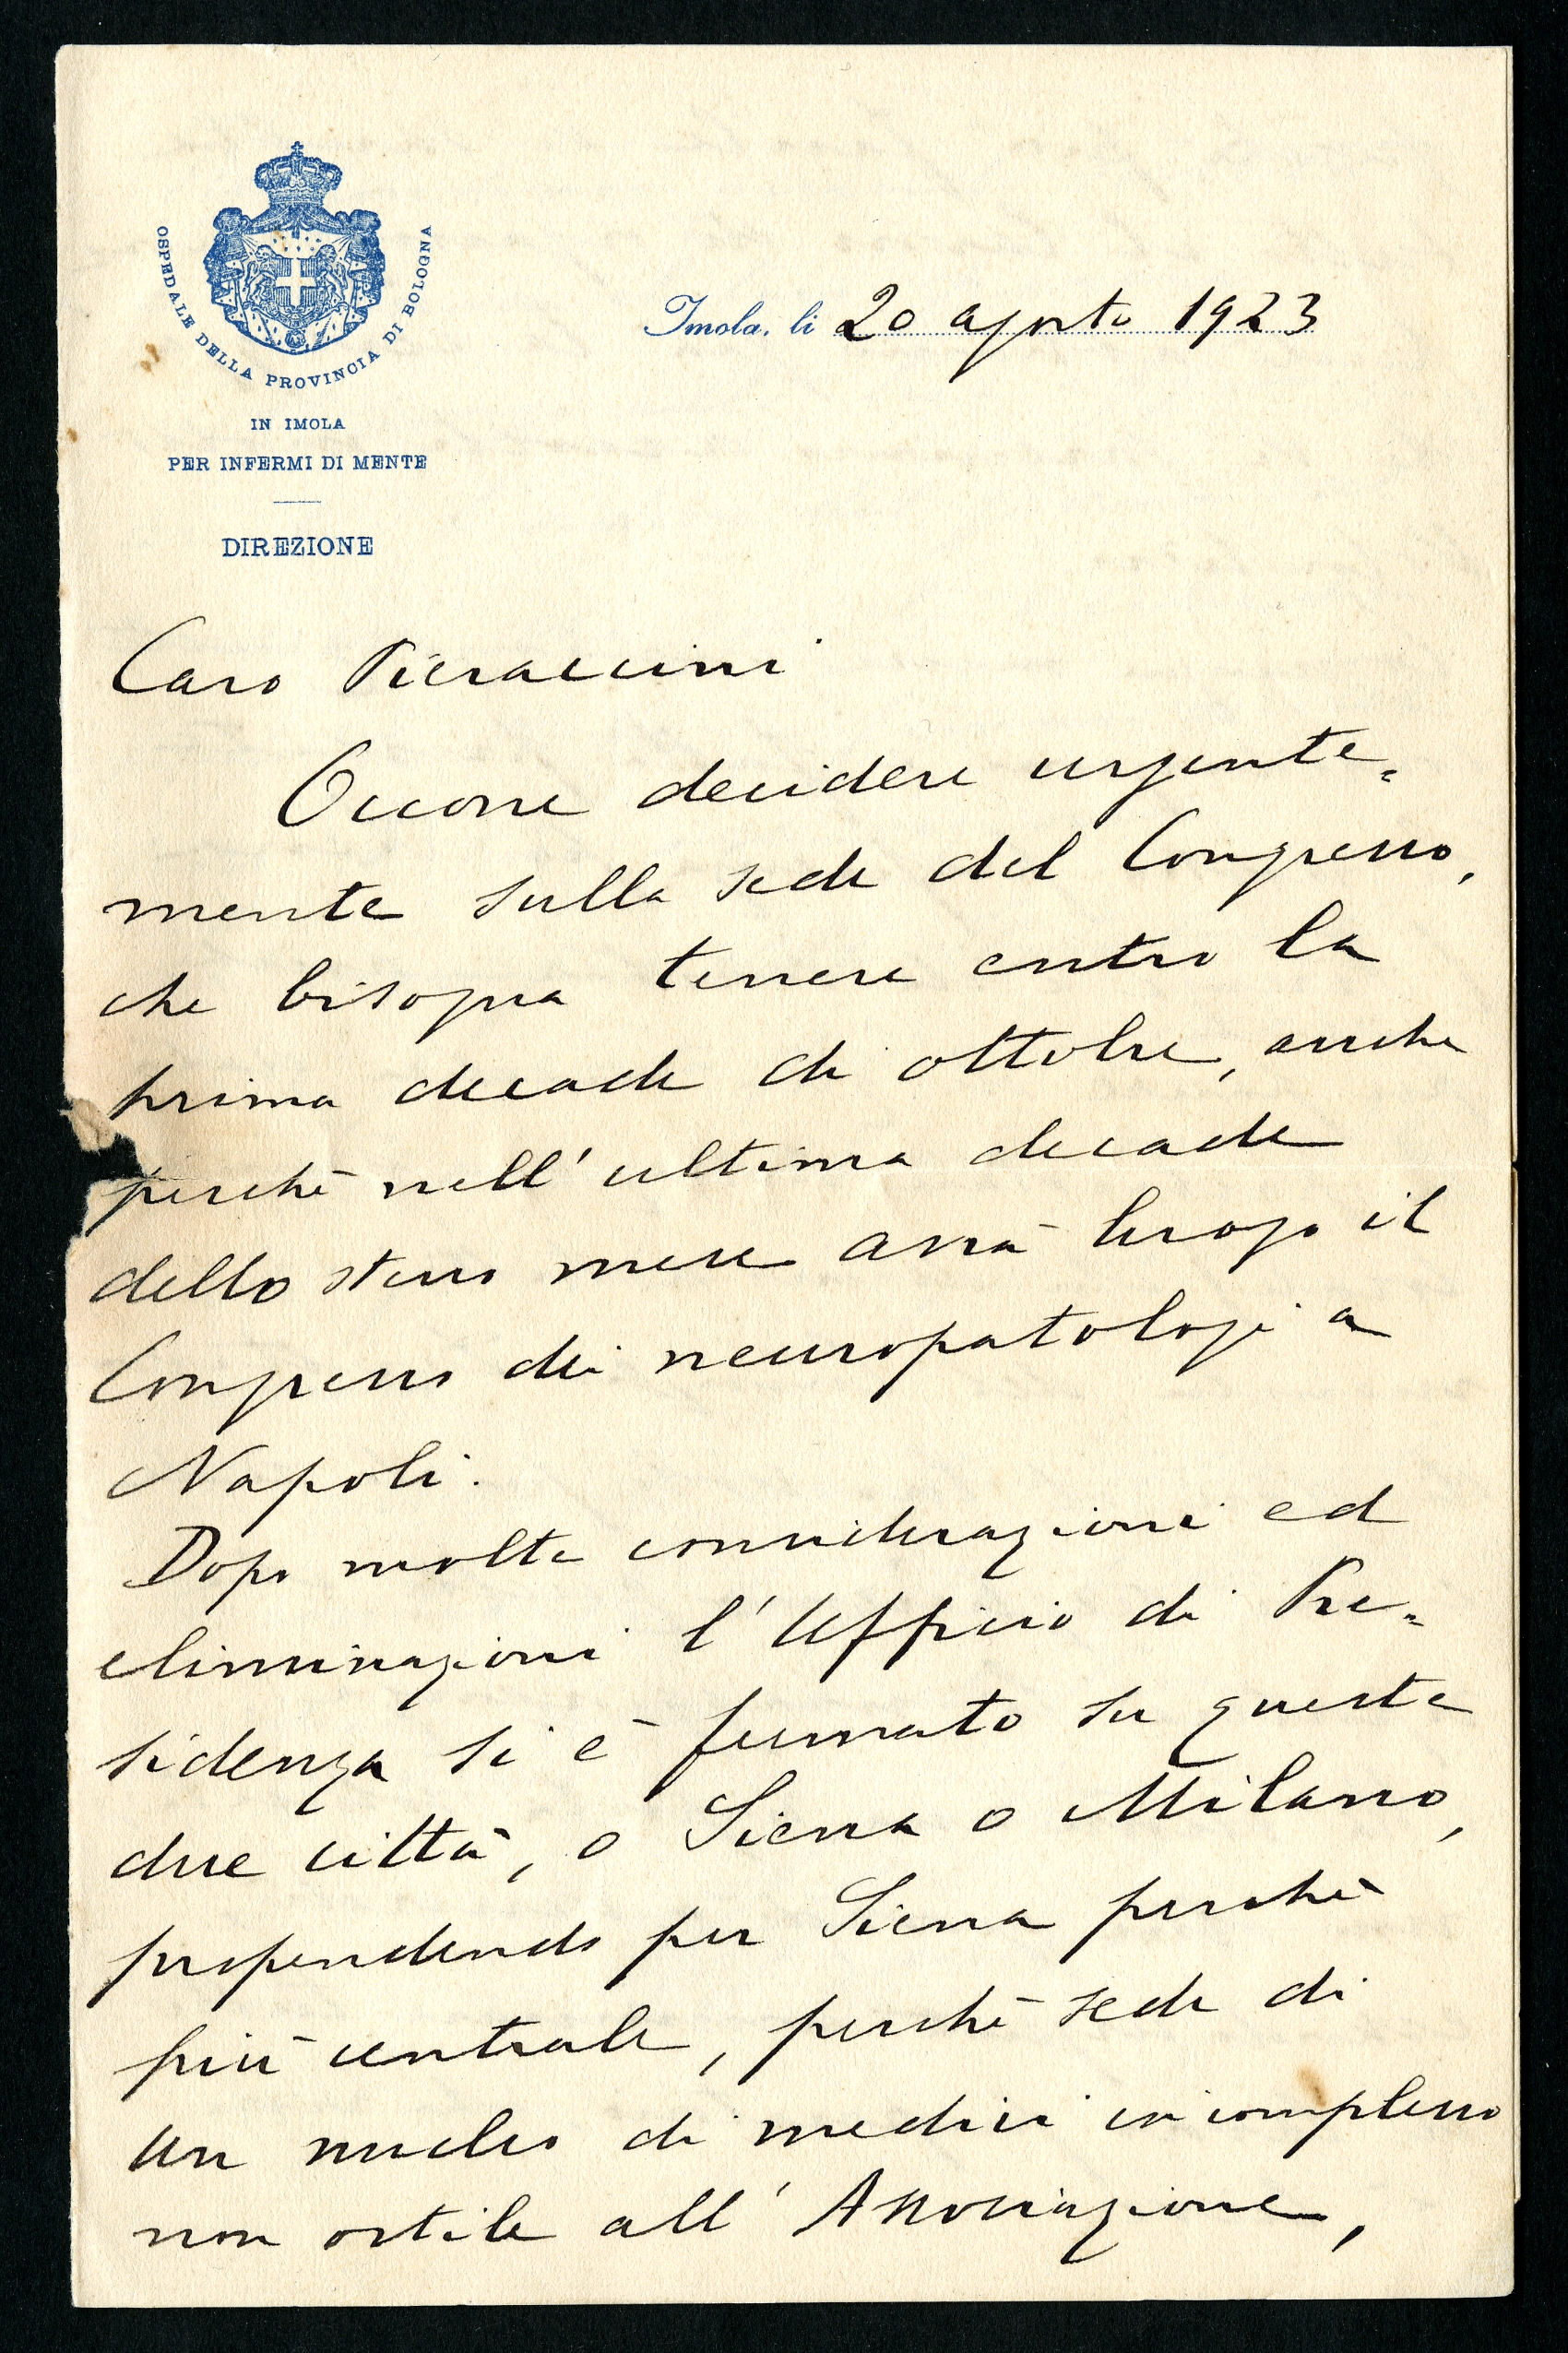 OSPEDALE DELLA PROVINCIA DI BOLOGNA
IN IMOLA
PER INFERMI DI MENTE
DIREZIONE
Imola, li 20 agosto 1923
Caro Pieraccini
Occorre decidere urgente=
mente sulla sede del Congresso,
che bisogna tenere entro la
prima decade di ottobre, anche
perchè nell'ultima decade
dello stesso mese avrà luogo il
Congresso dei neuropatologi a
Napoli.
Dopo molte considerazioni ed
eliminazioni l'Ufficio di Pre=
sidenza si è fermato su queste
due città, o Siena o Milano,
propendendo per Siena perchè
più centrale, perchè sede di
un nucleo di medici in complesso
non ostile all'Associazione,